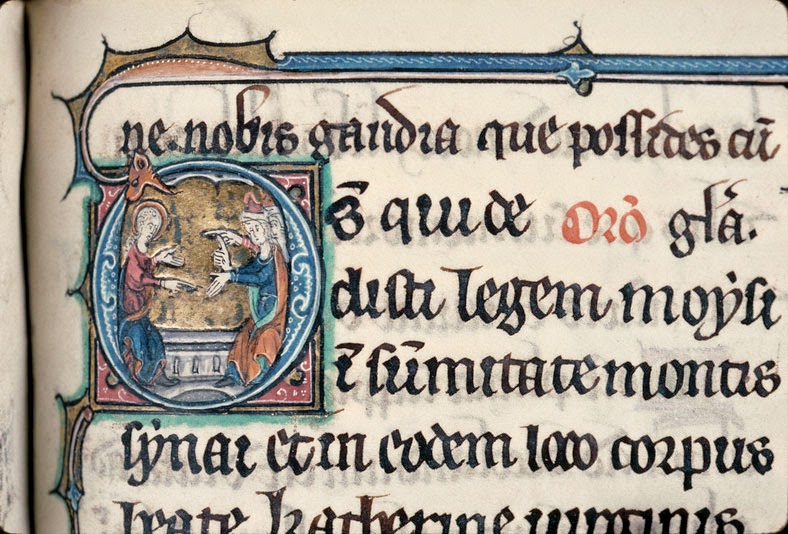 ne. nobis gaudia que possides cū
s̄ qui de Orō gl̄a.
disti legem moẏsi
ī sūmitate montis
sẏnai et in eodem loco corpus
beate katherine uirginis